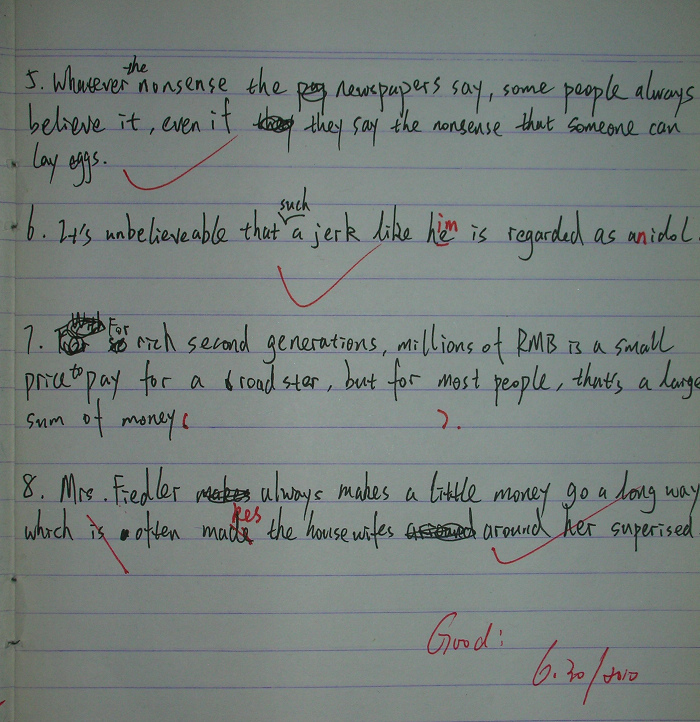 5. Whatever the nonsense the newspapers say, some people always
believe it, even if they say the nonsense that someone can
lay eggs.
6. It's unbelieveable that such a jerk like him is regarded as an idol.
7. For rich second generations, millions of RMB is a small
price to pay for a roadster, but for most people, that's a large
sum of money
8. Mrs. Fiedler always makes a little money go a long way
which is often makes the housewifes around her superised
Good!
6.30/2010